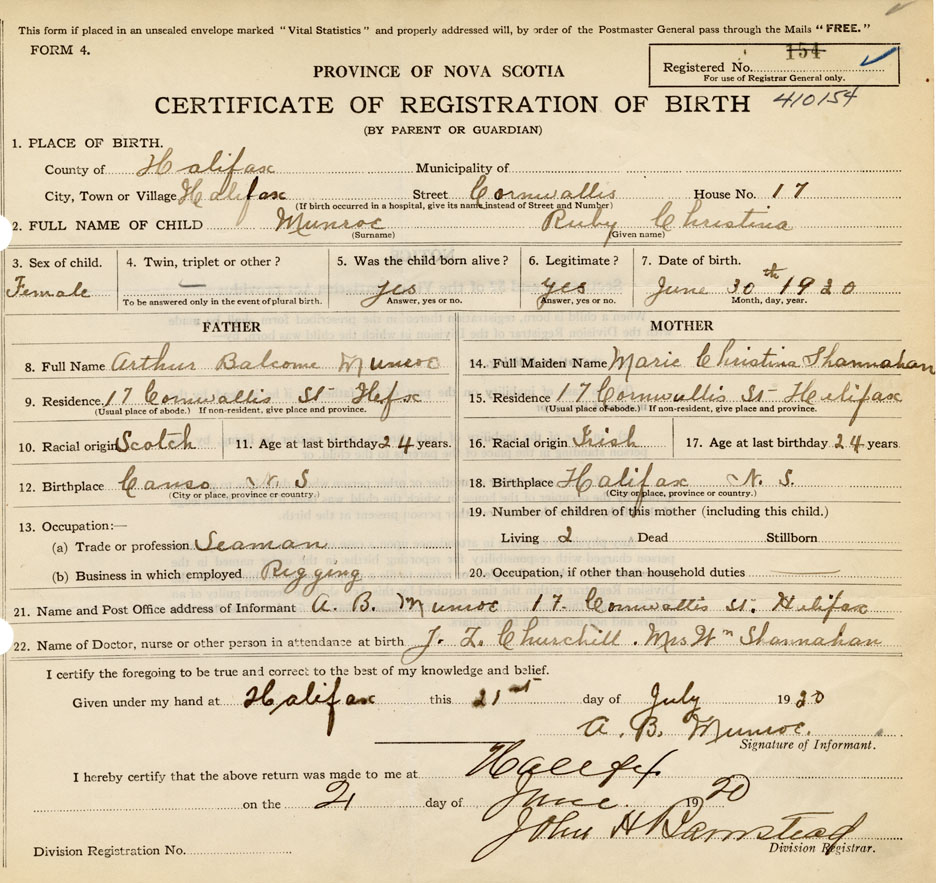 This form if placed in an unsealed envelope marked "Vital Statistics" and properly addressed will, by order of the Postmaster General pass through the Mails "FREE."
FORM 4.
154
Registered No.
For use of Registrar General only.
PROVINCE OF NOVA SCOTIA
CERTIFICATE OF REGISTRATION OF BIRTH 410154
(BY PARENT OR GUARDIAN)
1. PLACE OF BIRTH.
County of Halifax Municipality of
City, Town or Village Halifax Street Cornwallis House No. 17
(If birth occurred in a hospital, give its name instead of Street and Number)
2. FULL NAME OF CHILD Munroe Ruby Christina
(Surname) (Given name)
3. Sex of child. 4. Twin, triplet or other? 5. Was the child born alive? 6. Legitimate? 7. Date of birth.
Female — yes yes June 30th 1920
To be answered only in the event of plural birth. Answer, yes or no. Answer, yes or no. Month, day, year.
FATHER MOTHER
8. Full Name Arthur Balcome Munroe 14. Full Maiden Name Marie Christina Shannahan
9. Residence 17 Cornwallis St Hfx 15. Residence 17 Cornwallis St Halifax
(Usual place of abode.) If non-resident, give place and province. (Usual place of abode.) If non-resident, give place and province.
10. Racial origin Scotch 11. Age at last birthday 24 years. 16. Racial origin Irish 17. Age at last birthday 24 years.
12. Birthplace Canso N. S. 18. Birthplace Halifax N. S.
(City or place, province or country.) (City or place, province or country.)
13. Occupation:— 19. Number of children of this mother (including this child.)
(a) Trade or profession Seaman Living 2 Dead Stillborn
(b) Business in which employed Rigging 20. Occupation, if other than household duties —
21. Name and Post Office address of Informant A. B. Munroe 17. Cornwallis St. Halifax
22. Name of Doctor, nurse or other person in attendance at birth J. L. Churchill. Mrs Wm Shannahan
I certify the foregoing to be true and correct to the best of my knowledge and belief.
Given under my hand at Halifax this 21st day of July 1920
A. B. Munroe.
Signature of Informant.
I hereby certify that the above return was made to me at Halifax
on the 21 day of June 1920
John H Barnstead
Division Registration No. Division Registrar.